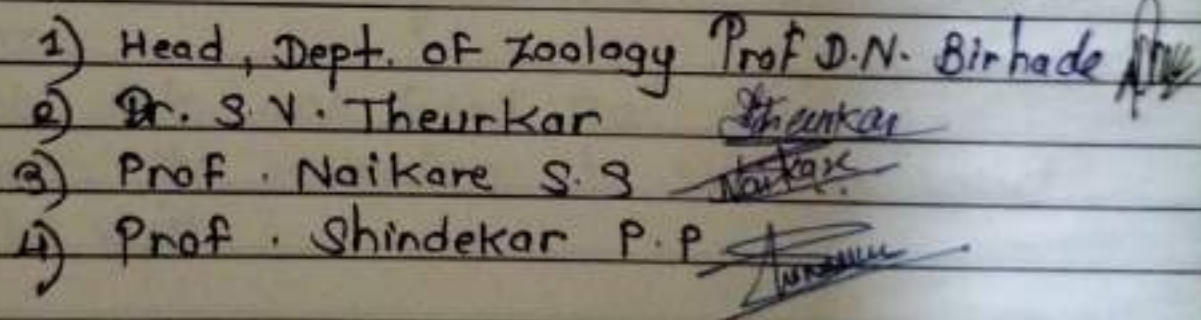 1) Head, Dept. of Zoology Prof D.N. Birhade
2) Dr. S.V. Theurkar Theurkar
3) Prof. Naikare S.S Naikare
4) Prof. Shindekar P.P